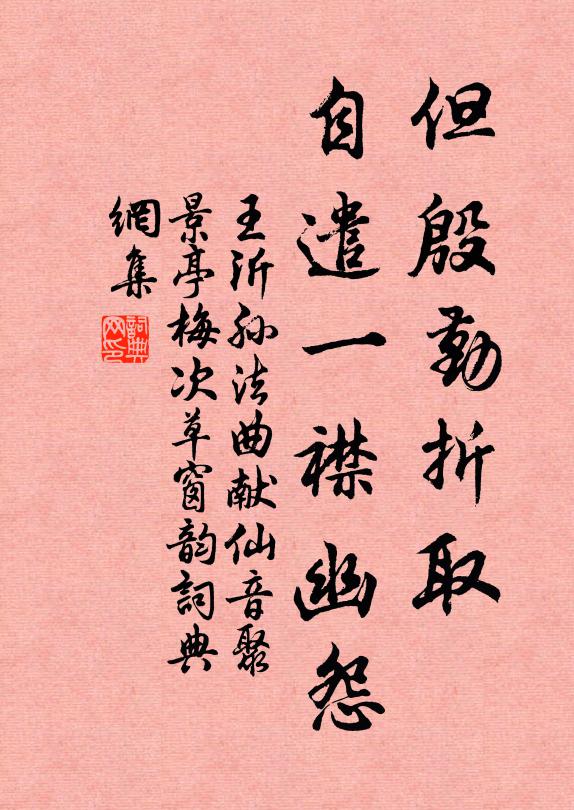 但殷勤折取
自遣一襟幽怨
王沂孙法曲献仙音聚
景亭梅次草窗韵詞典
網集
詞典網印